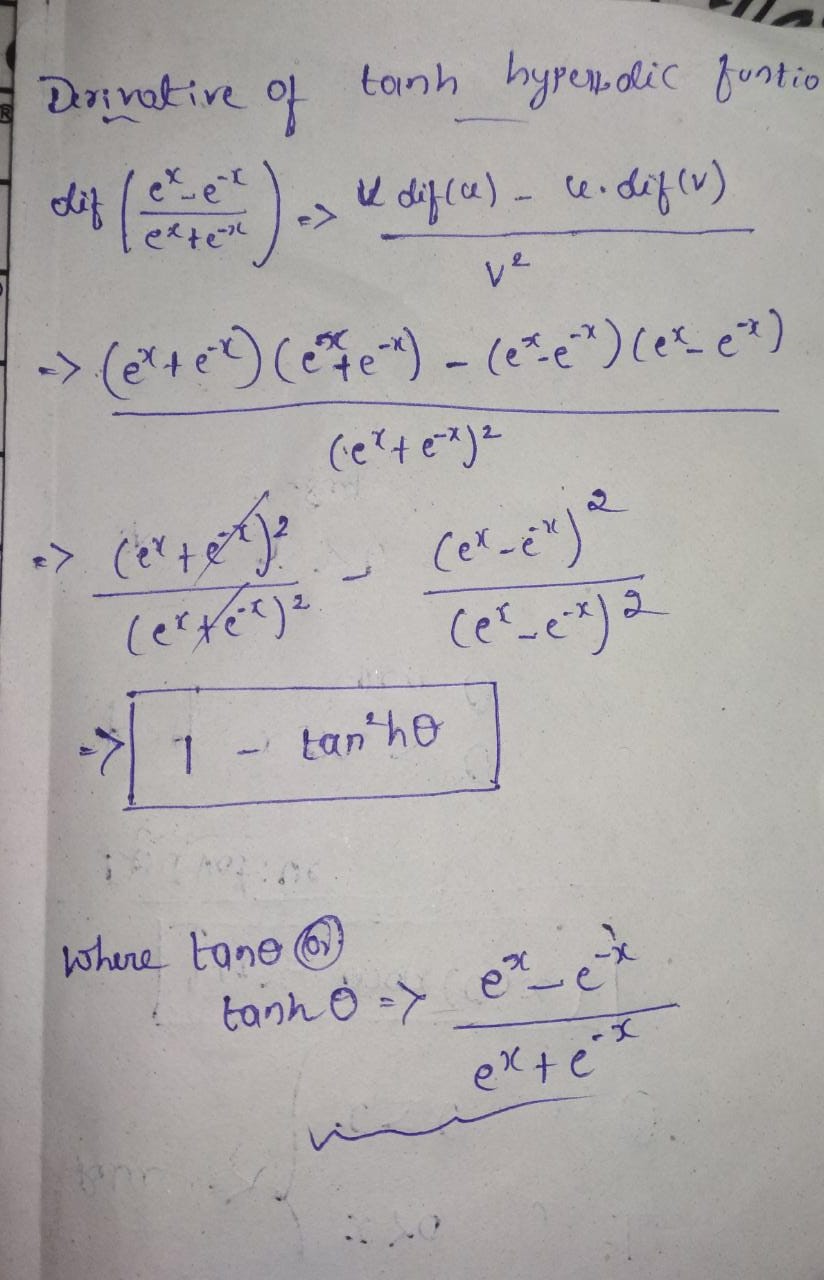 Derivative of tanh hyperbolic funtio
dif (e^x - e^-x / e^x + e^-x) => V dif(u) - u. dif(v) / v^2
=> (e^x + e^-x) (e^x + e^-x) - (e^x - e^-x) (e^x - e^-x) / (e^x + e^-x)^2
=> (e^x + e^-x)^2 / (e^x + e^-x)^2 - (e^x - e^-x)^2 / (e^x - e^-x)^2
=> 1 - tan^2hθ
where tanθ or
tanhθ => e^x - e^-x / e^x + e^-x